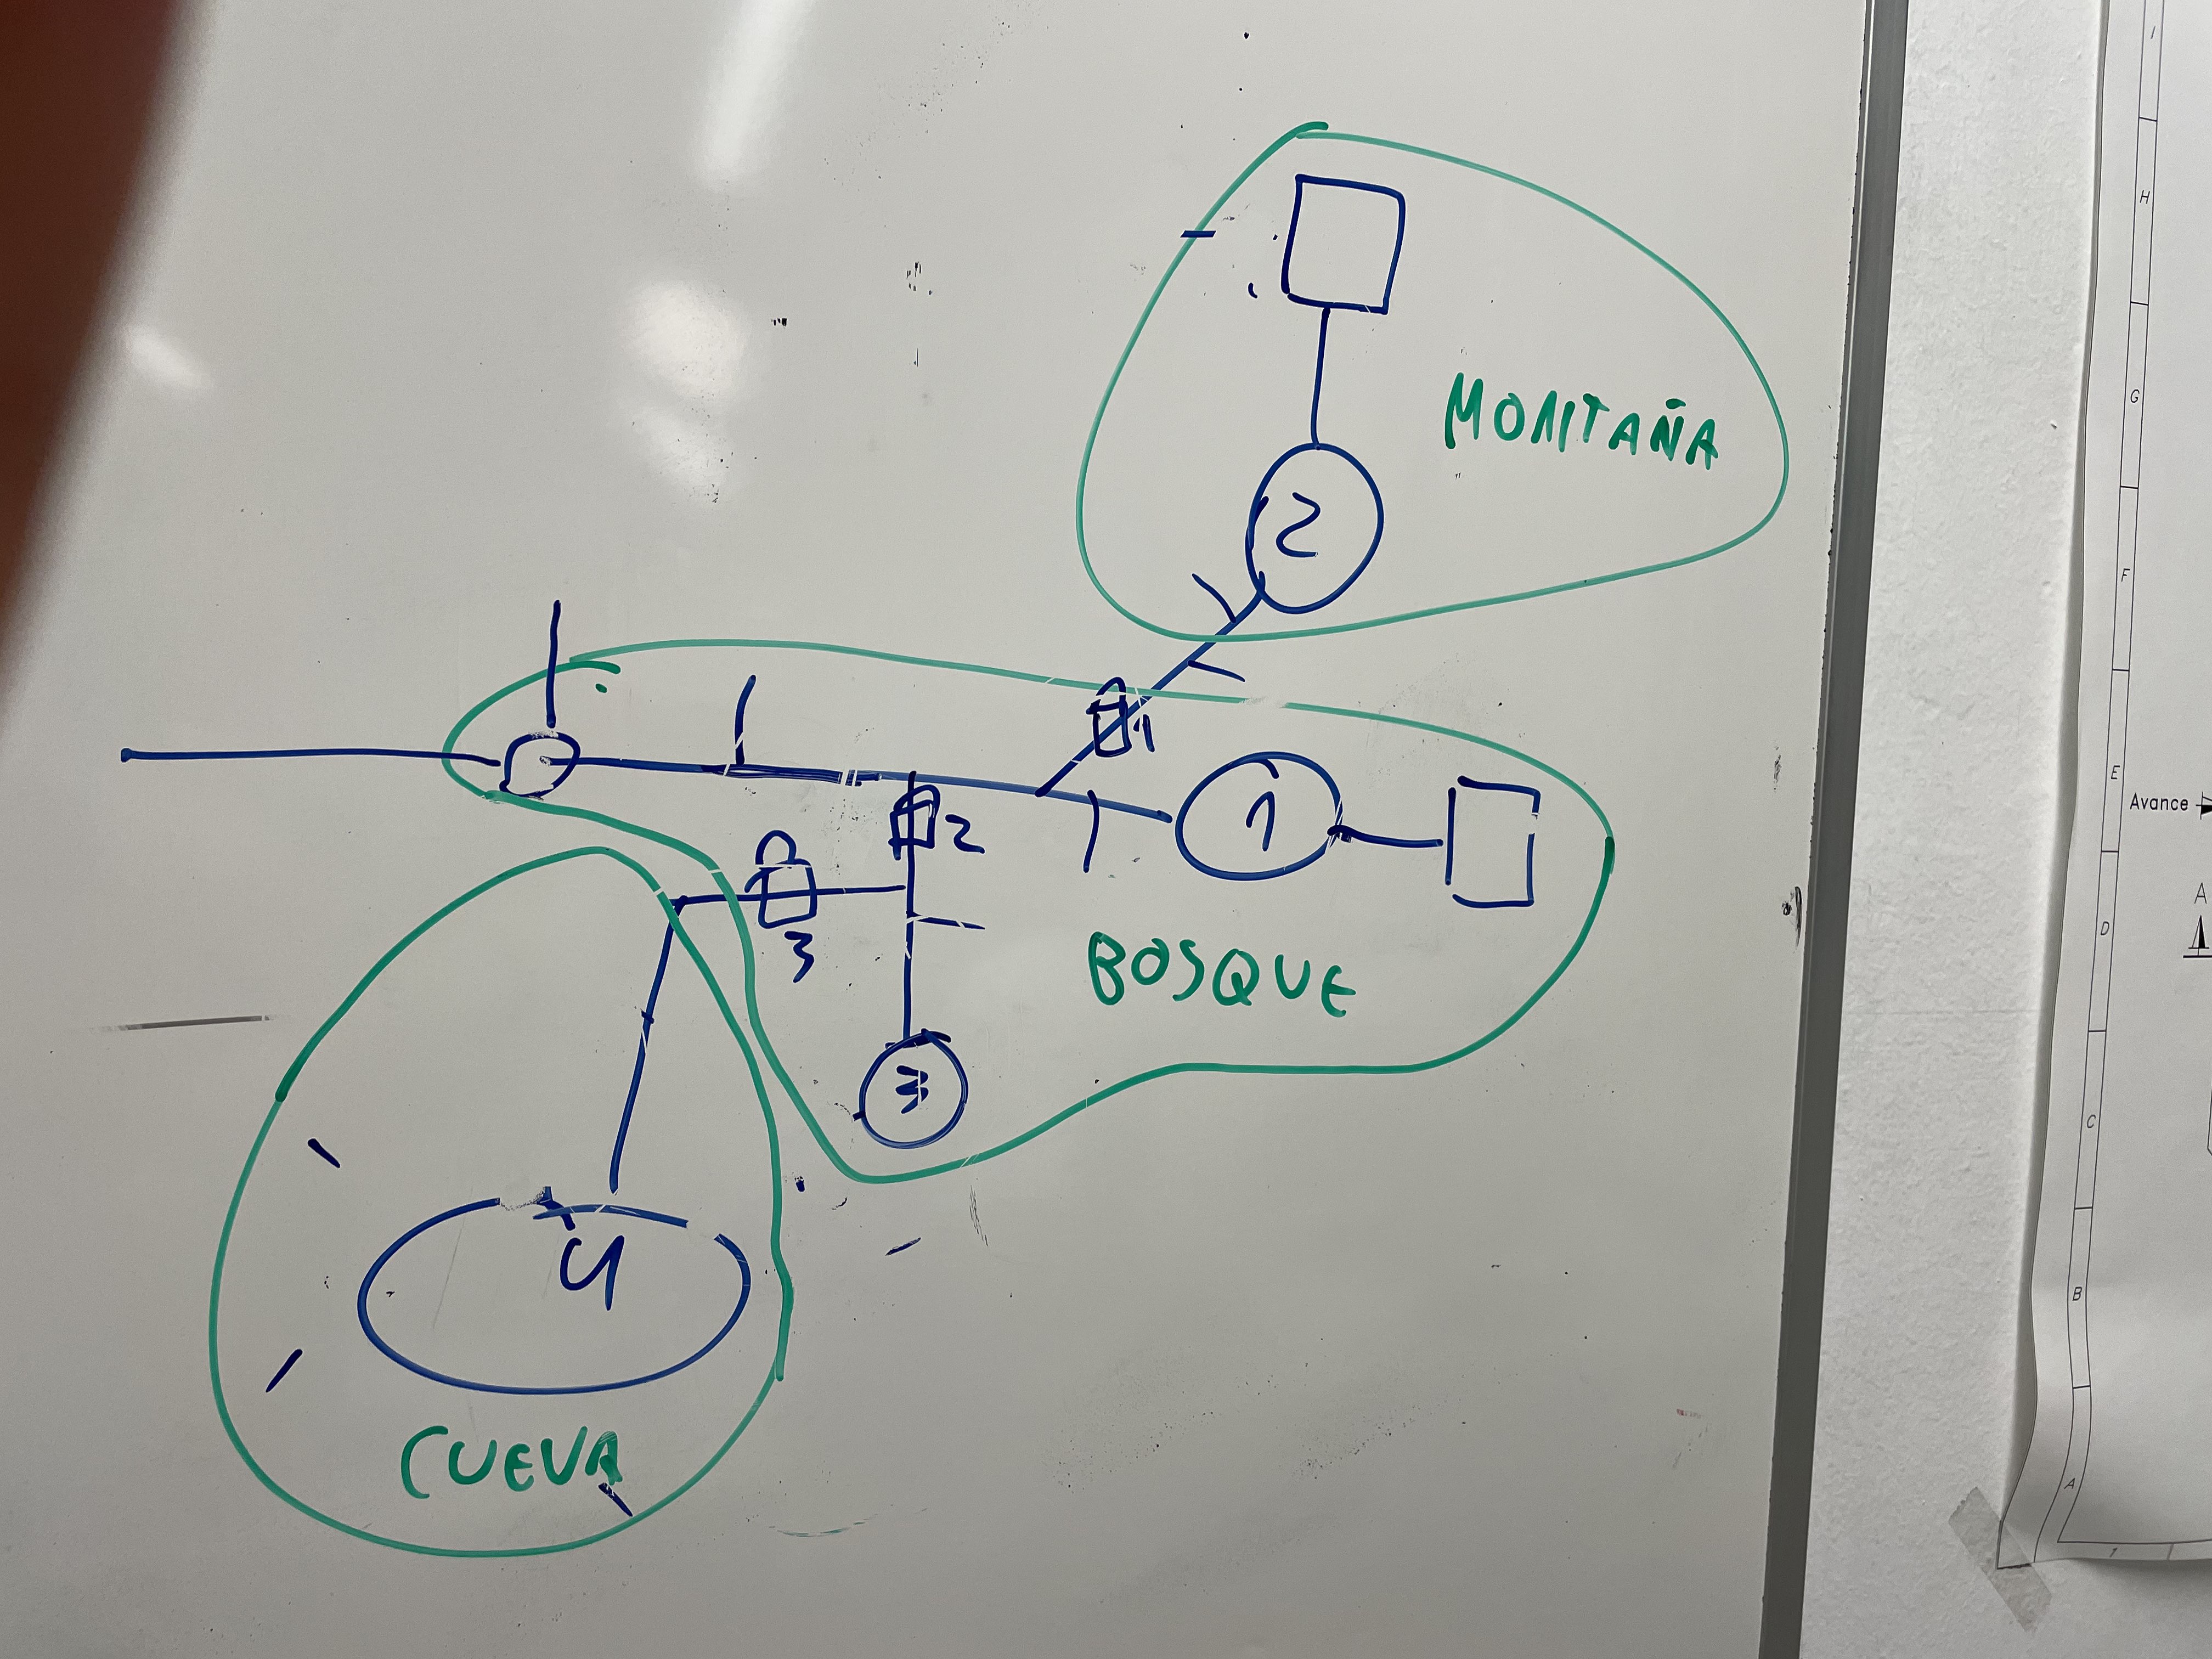 MONTAÑA
2
1
1
2
3
BOSQUE
3
4
CUEVA
I
H
G
F
E
Avance
A
D
C
B
A
1